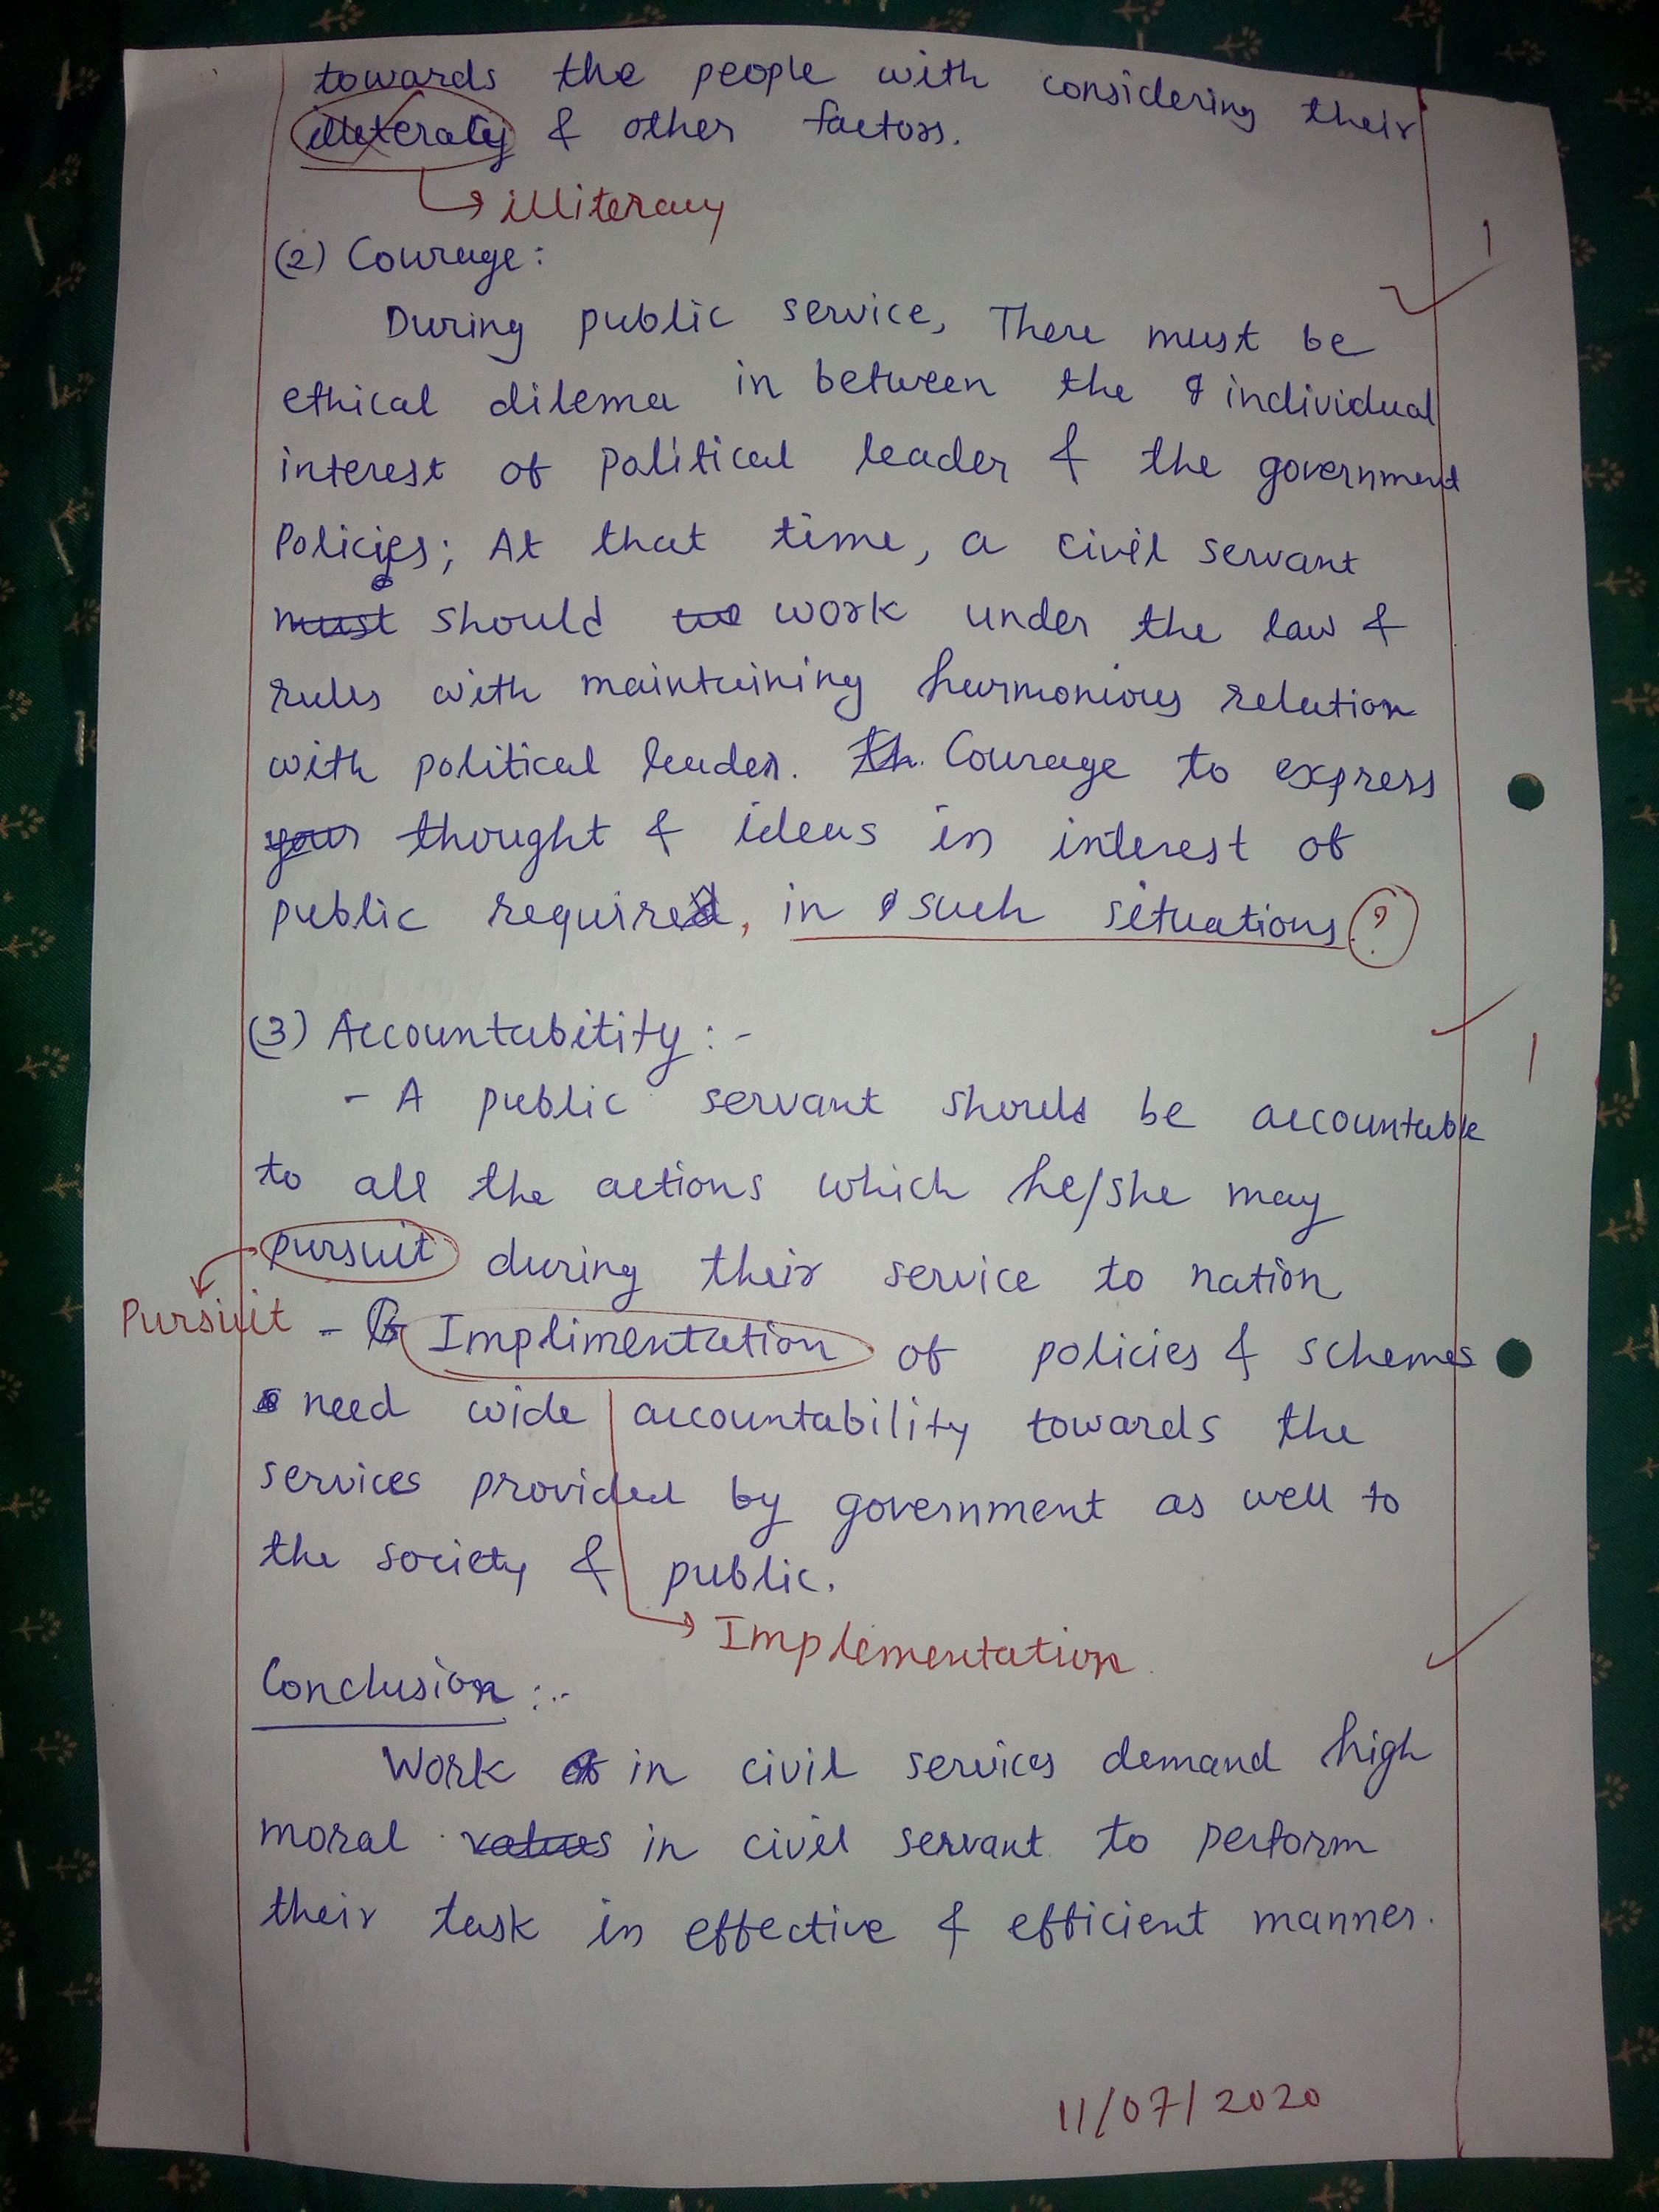 towards the people with considering their
illiteracy & other factors.
→ illiteracy
(2) Courage:
1
During public service, There must be
ethical dilema in between the individual
interest of political leader & the government
Policies; At that time, a civil servant
must should work under the law &
rules with maintaining harmonious relation
with political leader. Th. Courage to express
your thought & ideas in interest of
public required, in such situations ?
(3) Accountability :-
1
- A public servant should be accountable
to all the actions which he/she may
pursuit during their service to nation
Pursuit - Implimentation of policies & schemes
need wide accountability towards the
services provided by government as well to
the society & public.
→ Implementation
Conclusion :-
Work of in civil services demand high
moral values in civil servant to perform
their task in effective & efficient manner.
11/07/2020